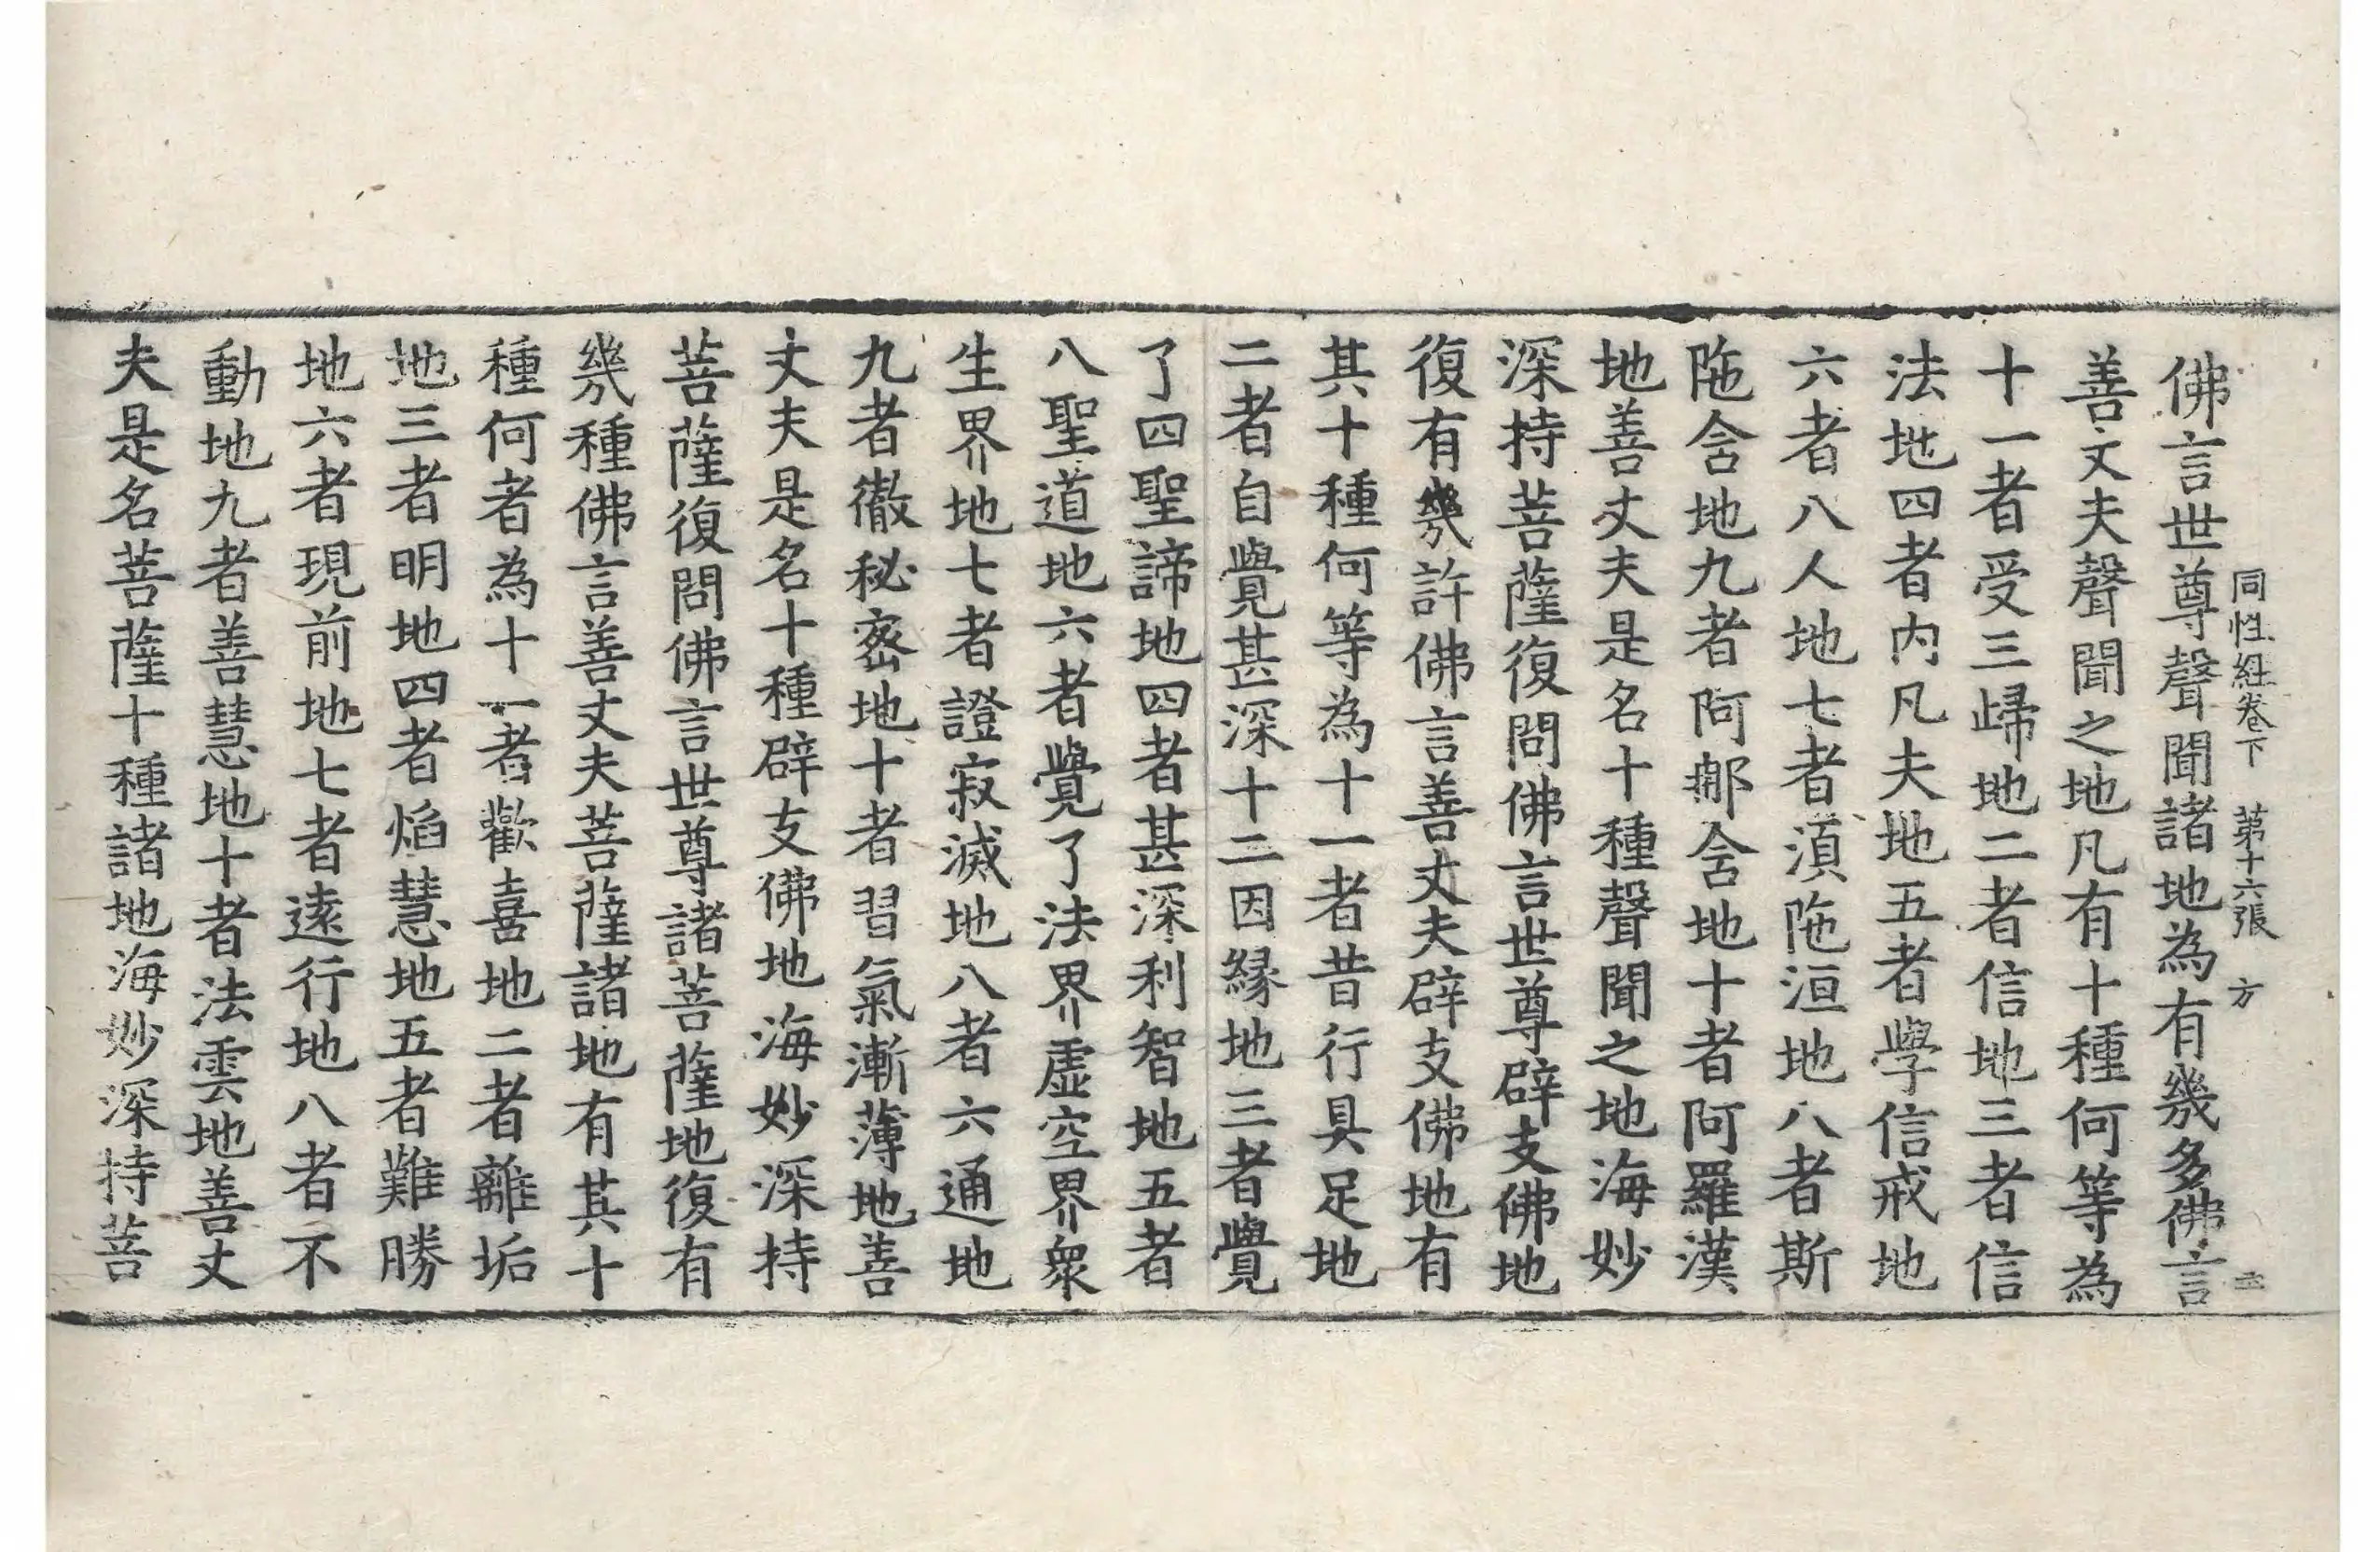 同性經卷下 第十六張 方
佛言世尊聲聞諸地為有幾多佛言
善丈夫聲聞之地凡有十種何等為
十一者受三歸地二者信地三者信
法地四者內凡夫地五者學信戒地
六者八人地七者湏陁洹地八者斯
陁含地九者阿那含地十者阿羅漢
地善丈夫是名十種聲聞之地海妙
深持菩薩復問佛言世尊辟支佛地
復有幾許佛言善丈夫辟支佛地有
其十種何等為十一者昔行具足地
二者自覺甚深十二因緣地三者覺
了四聖諦地四者甚深利智地五者
八聖道地六者覺了法界虛空界眾
生界地七者證寂滅地八者六通地
九者徹秘密地十者習氣漸薄地善
丈夫是名十種辟支佛地海妙深持
菩薩復問佛言世尊諸菩薩地復有
幾種佛言善丈夫菩薩諸地有其十
種何者為十一者歡喜地二者離垢
地三者明地四者焰慧地五者難勝
地六者現前地七者遠行地八者不
動地九者善慧地十者法雲地善丈
夫是名菩薩十種諸地海妙深持菩